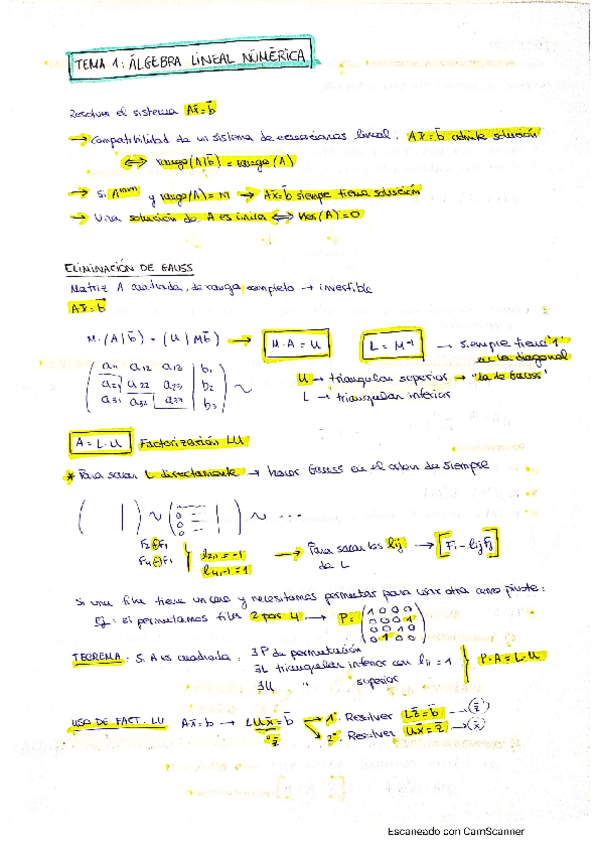 TEMA 1: ÁLGEBRA LINEAL NÚMERICA
Resolver el sistema Ax̄ = b̄
→ Compatibilidad de un sistema de ecuaciones lineal. Ax̄ = b̄ admite solución
⟺ rango(A|b̄) = rango(A)
→ Si Aᵐˣⁿ y rango(A) = m → Ax̄ = b̄ siempre tiene solución
→ Una solución de A es única ⟺ Ker(A) = 0
ELIMINACIÓN DE GAUSS
Matriz A cuadrada, de rango completo → invertible
Ax̄ = b̄
M·(A|b̄) = (U|Mb̄) → M·A = U L = M⁻¹ → siempre tiene "1" en la diagonal
(a11 a12 a13 | b1
a21 a22 a23 | b2
a31 a32 a33 | b3) ~
U → triangular superior → "la de Gauss"
L → triangular inferior
A = L·U Factorización LU
* Para sacar L directamente → hacer Gauss en el orden de siempre
( | ) ~ ( 0 0 0 | ) ~ ...
F2+F1
F4-F1
l21 = -1
l41 = 1
→ Para sacar los lij de L → [Fi - lij Fj]
Si una fila tiene un cero y necesitamos permutar para usar otra como pivote:
Ej: si permutamos fila 2 por 4 → P = (1 0 0 0
0 0 0 1
0 0 1 0
0 1 0 0)
TEOREMA: Si A es cuadrada, ∃ P de permutación
∃L triangular inferior con lii = 1
∃U " superior
P·A = L·U
USO DE FACT. LU Ax̄ = b → LUx̄ = b̄
"z̄
1º. Resolver Lz̄ = b̄ → (z̄)
2º. Resolver Ux̄ = z̄ → (x̄)
Escaneado con CamScanner